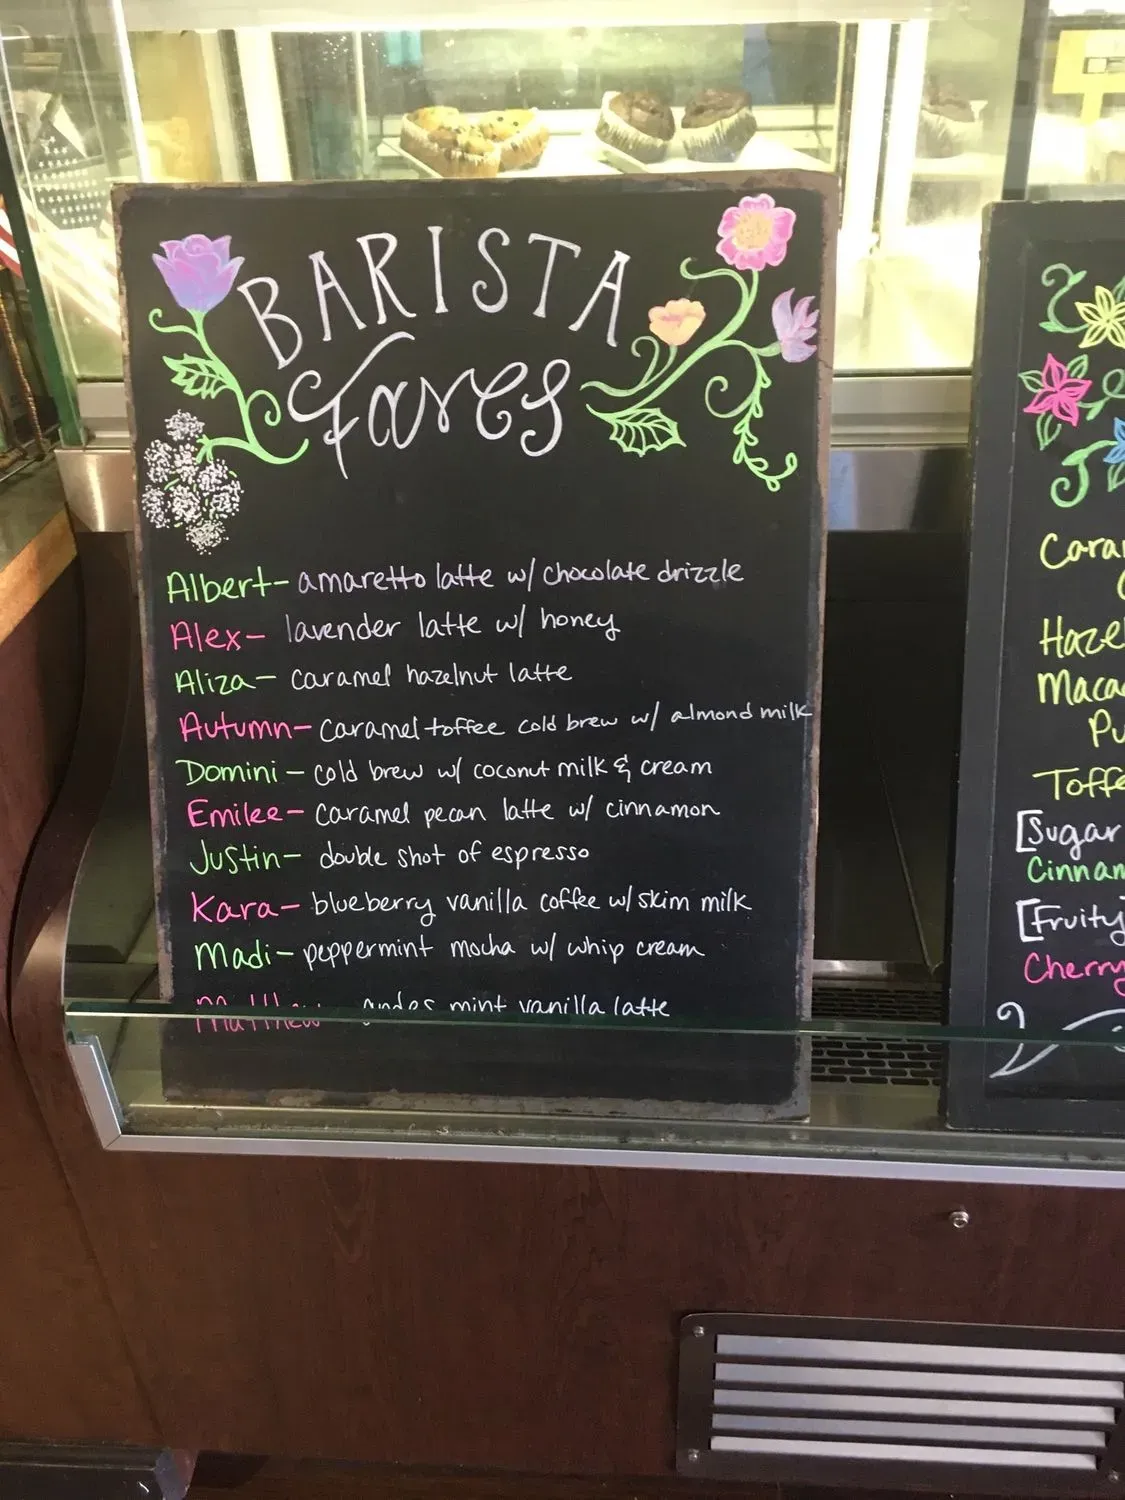 BARISTA
Faves
Albert- amaretto latte w/ chocolate drizzle
Alex- lavender latte w/ honey
Aliza- caramel hazelnut latte
Autumn- caramel toffee cold brew w/ almond milk
Domini- cold brew w/ coconut milk & cream
Emilee- caramel pecan latte w/ cinnamon
Justin- double shot of espresso
Kara- blueberry vanilla coffee w/ skim milk
Madi- peppermint mocha w/ whip cream
Matthew andes mint vanilla latte
Cara
Hazel
Maca
Pu
Toffe
[Sugar
Cinnam
[Fruity]
Cherry